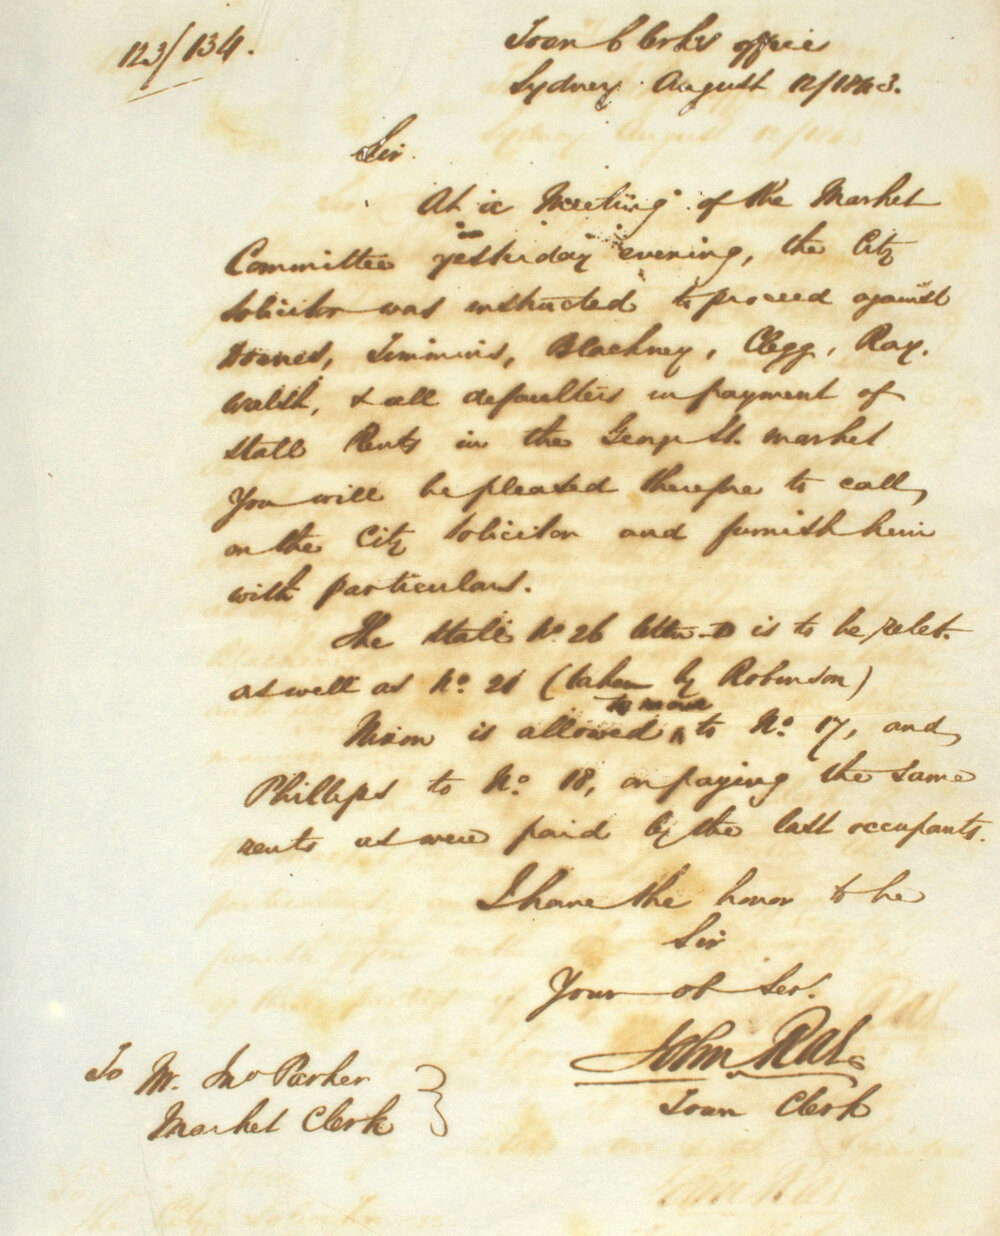 123/134.
Town Clerk's office
Sydney August 12/1843.
Sir
At a Meeting of the Market
Committee yesterday evening, the City
Solicitor was instructed to proceed against
Downes, Simmins, Blackney, Clegg, Ray,
Walsh, & all defaulters in payment of
Stall Rents in the George St. Market
You will be pleased therefore to call
on the City Solicitor and furnish him
with particulars.
The Stall No. 26 is to be relet.
as well as No. 21 (taken by Robinson)
to move
Nixon is allowed ^ to No. 17, and
Phillips to No. 18, on paying the same
rents as were paid by the last occupants.
I have the honor to be
Sir
Your ob Ser.
John Rae
Town Clerk
To Mr. Jno Parker
Market Clerk